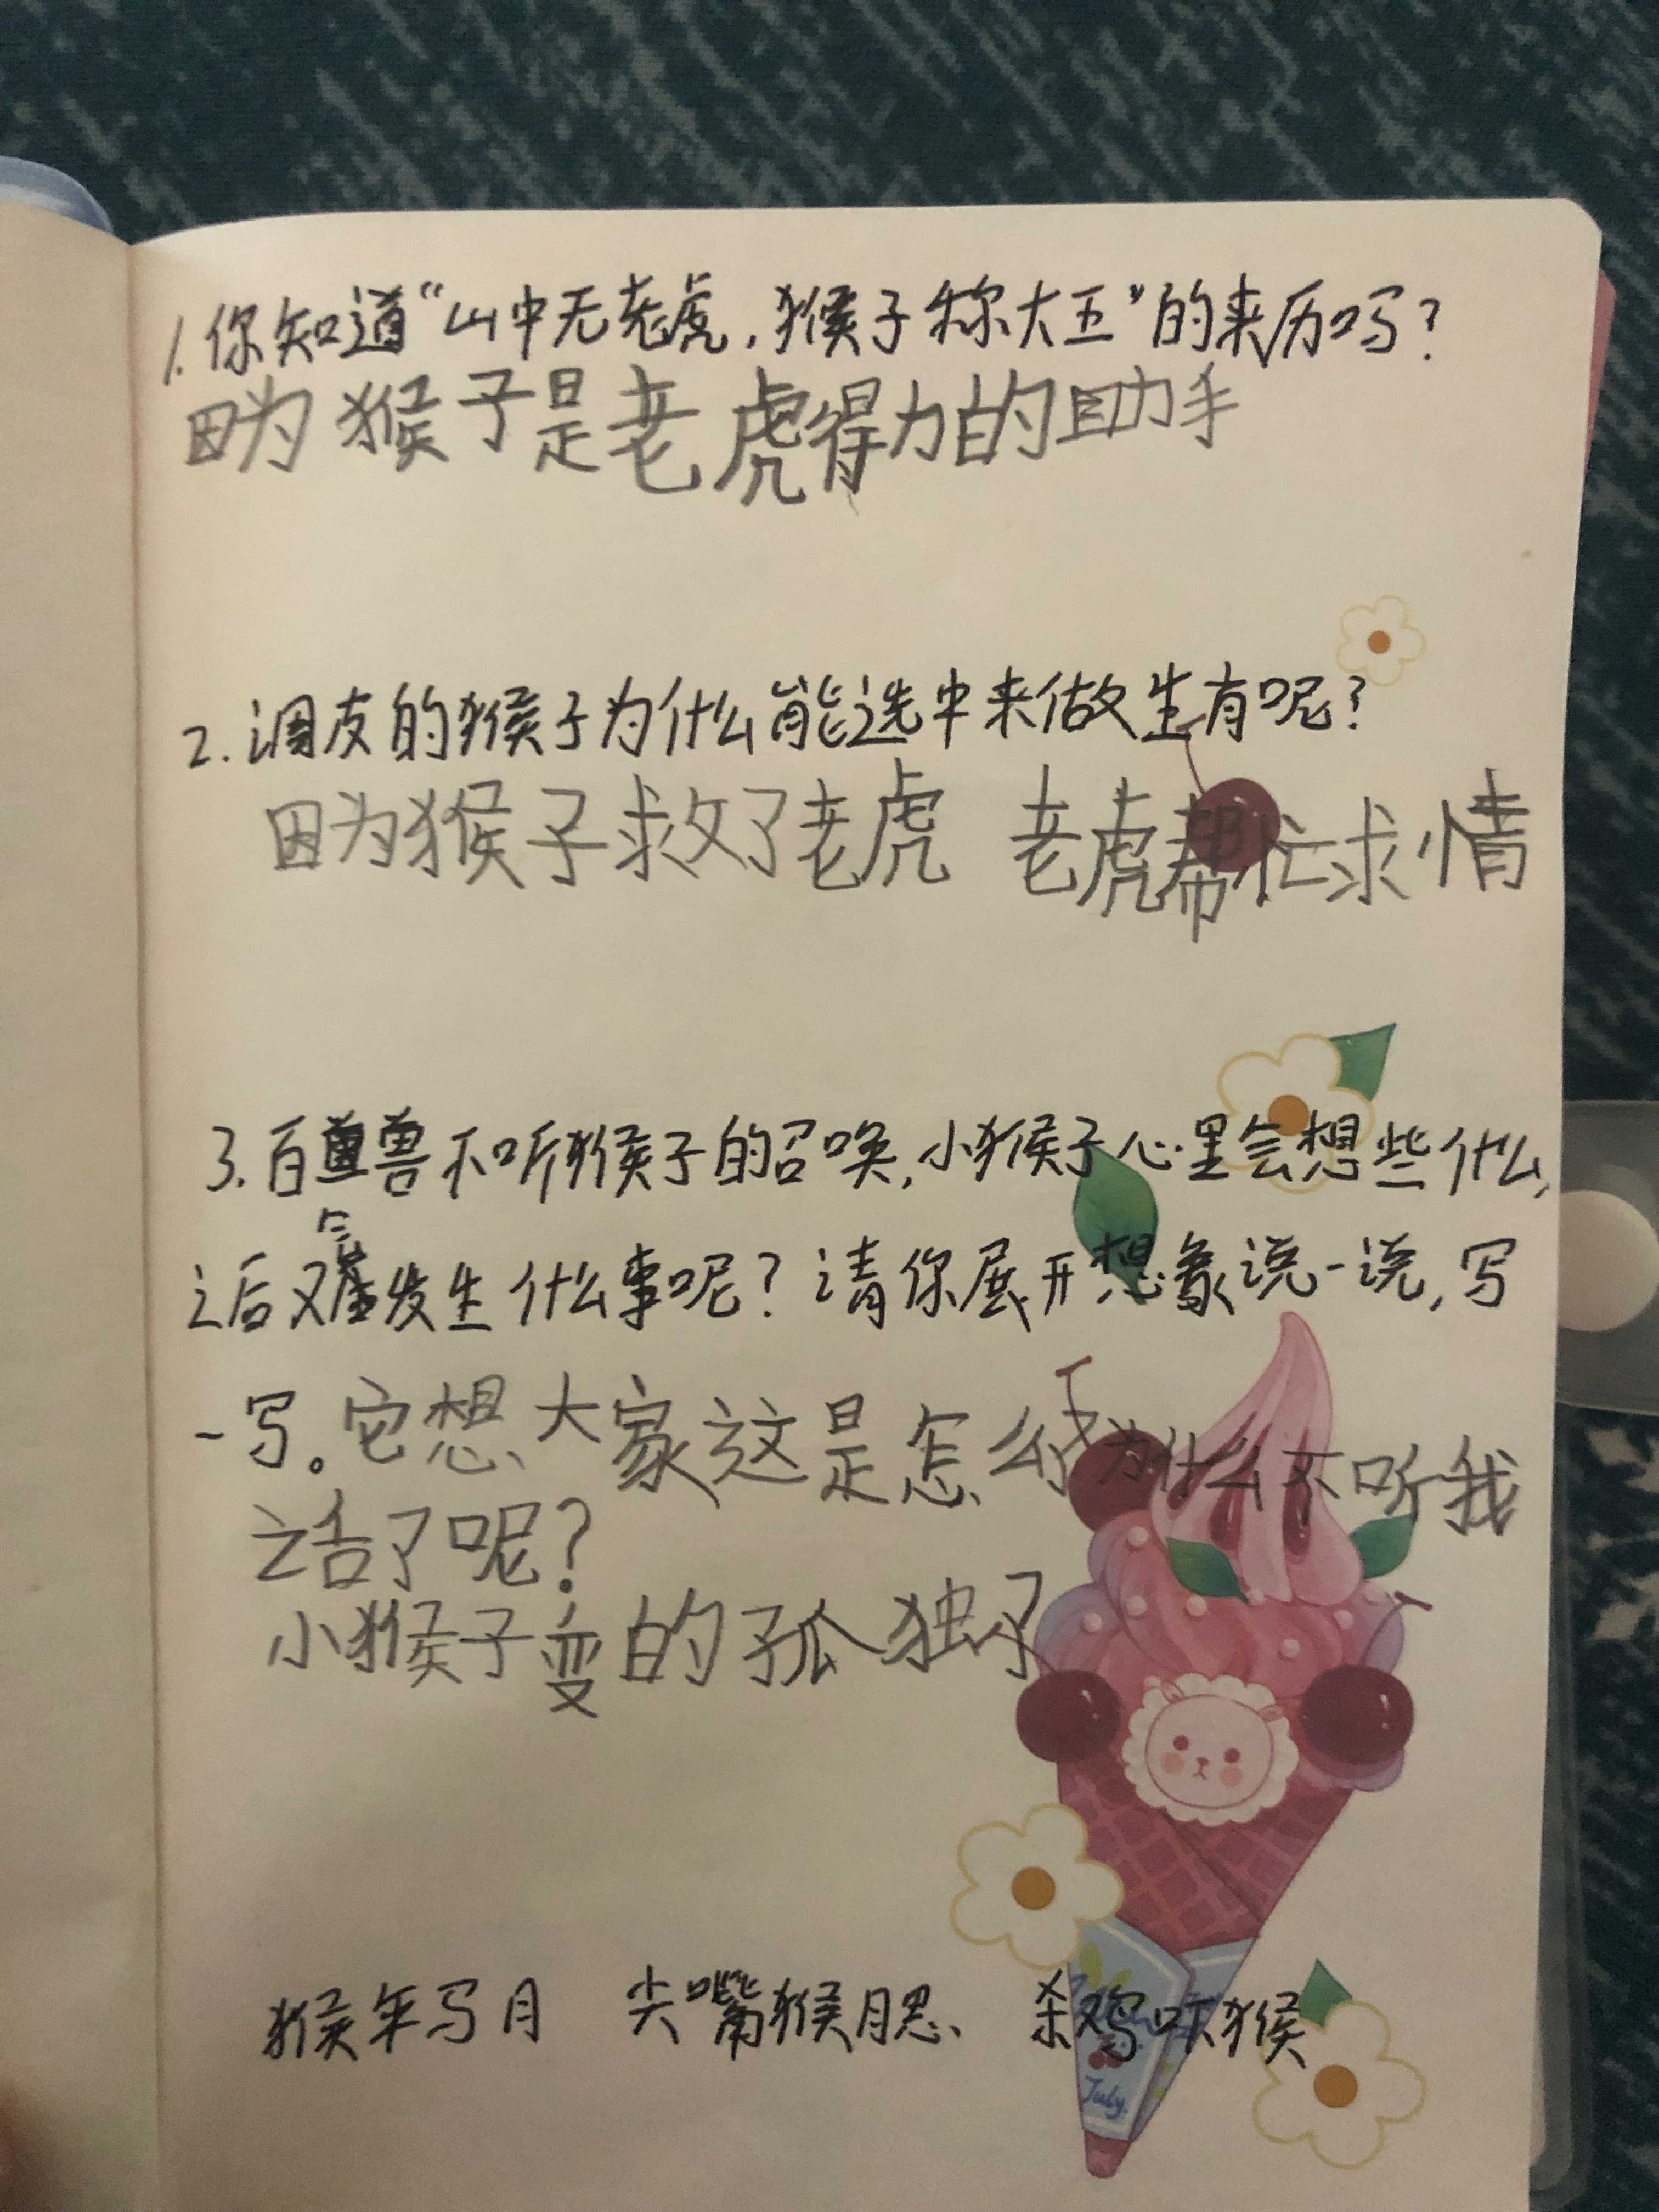 1.你知道“山中无老虎,猴子称大王”的来历吗?
因为猴子是老虎得力的助手
2.调皮的猴子为什么能选中来做生肖呢?
因为猴子求救了老虎 老虎帮忙求情
3.百兽不听猴子的召唤,小猴子心里会想些什么,
之后又会发生什么事呢?请你展开想象说一说,写
一写。它想、大家这是怎么了为什么不听我
话了呢?
小猴子变的孤独了
猴年马月 尖嘴猴腮、 杀鸡吓猴
July.